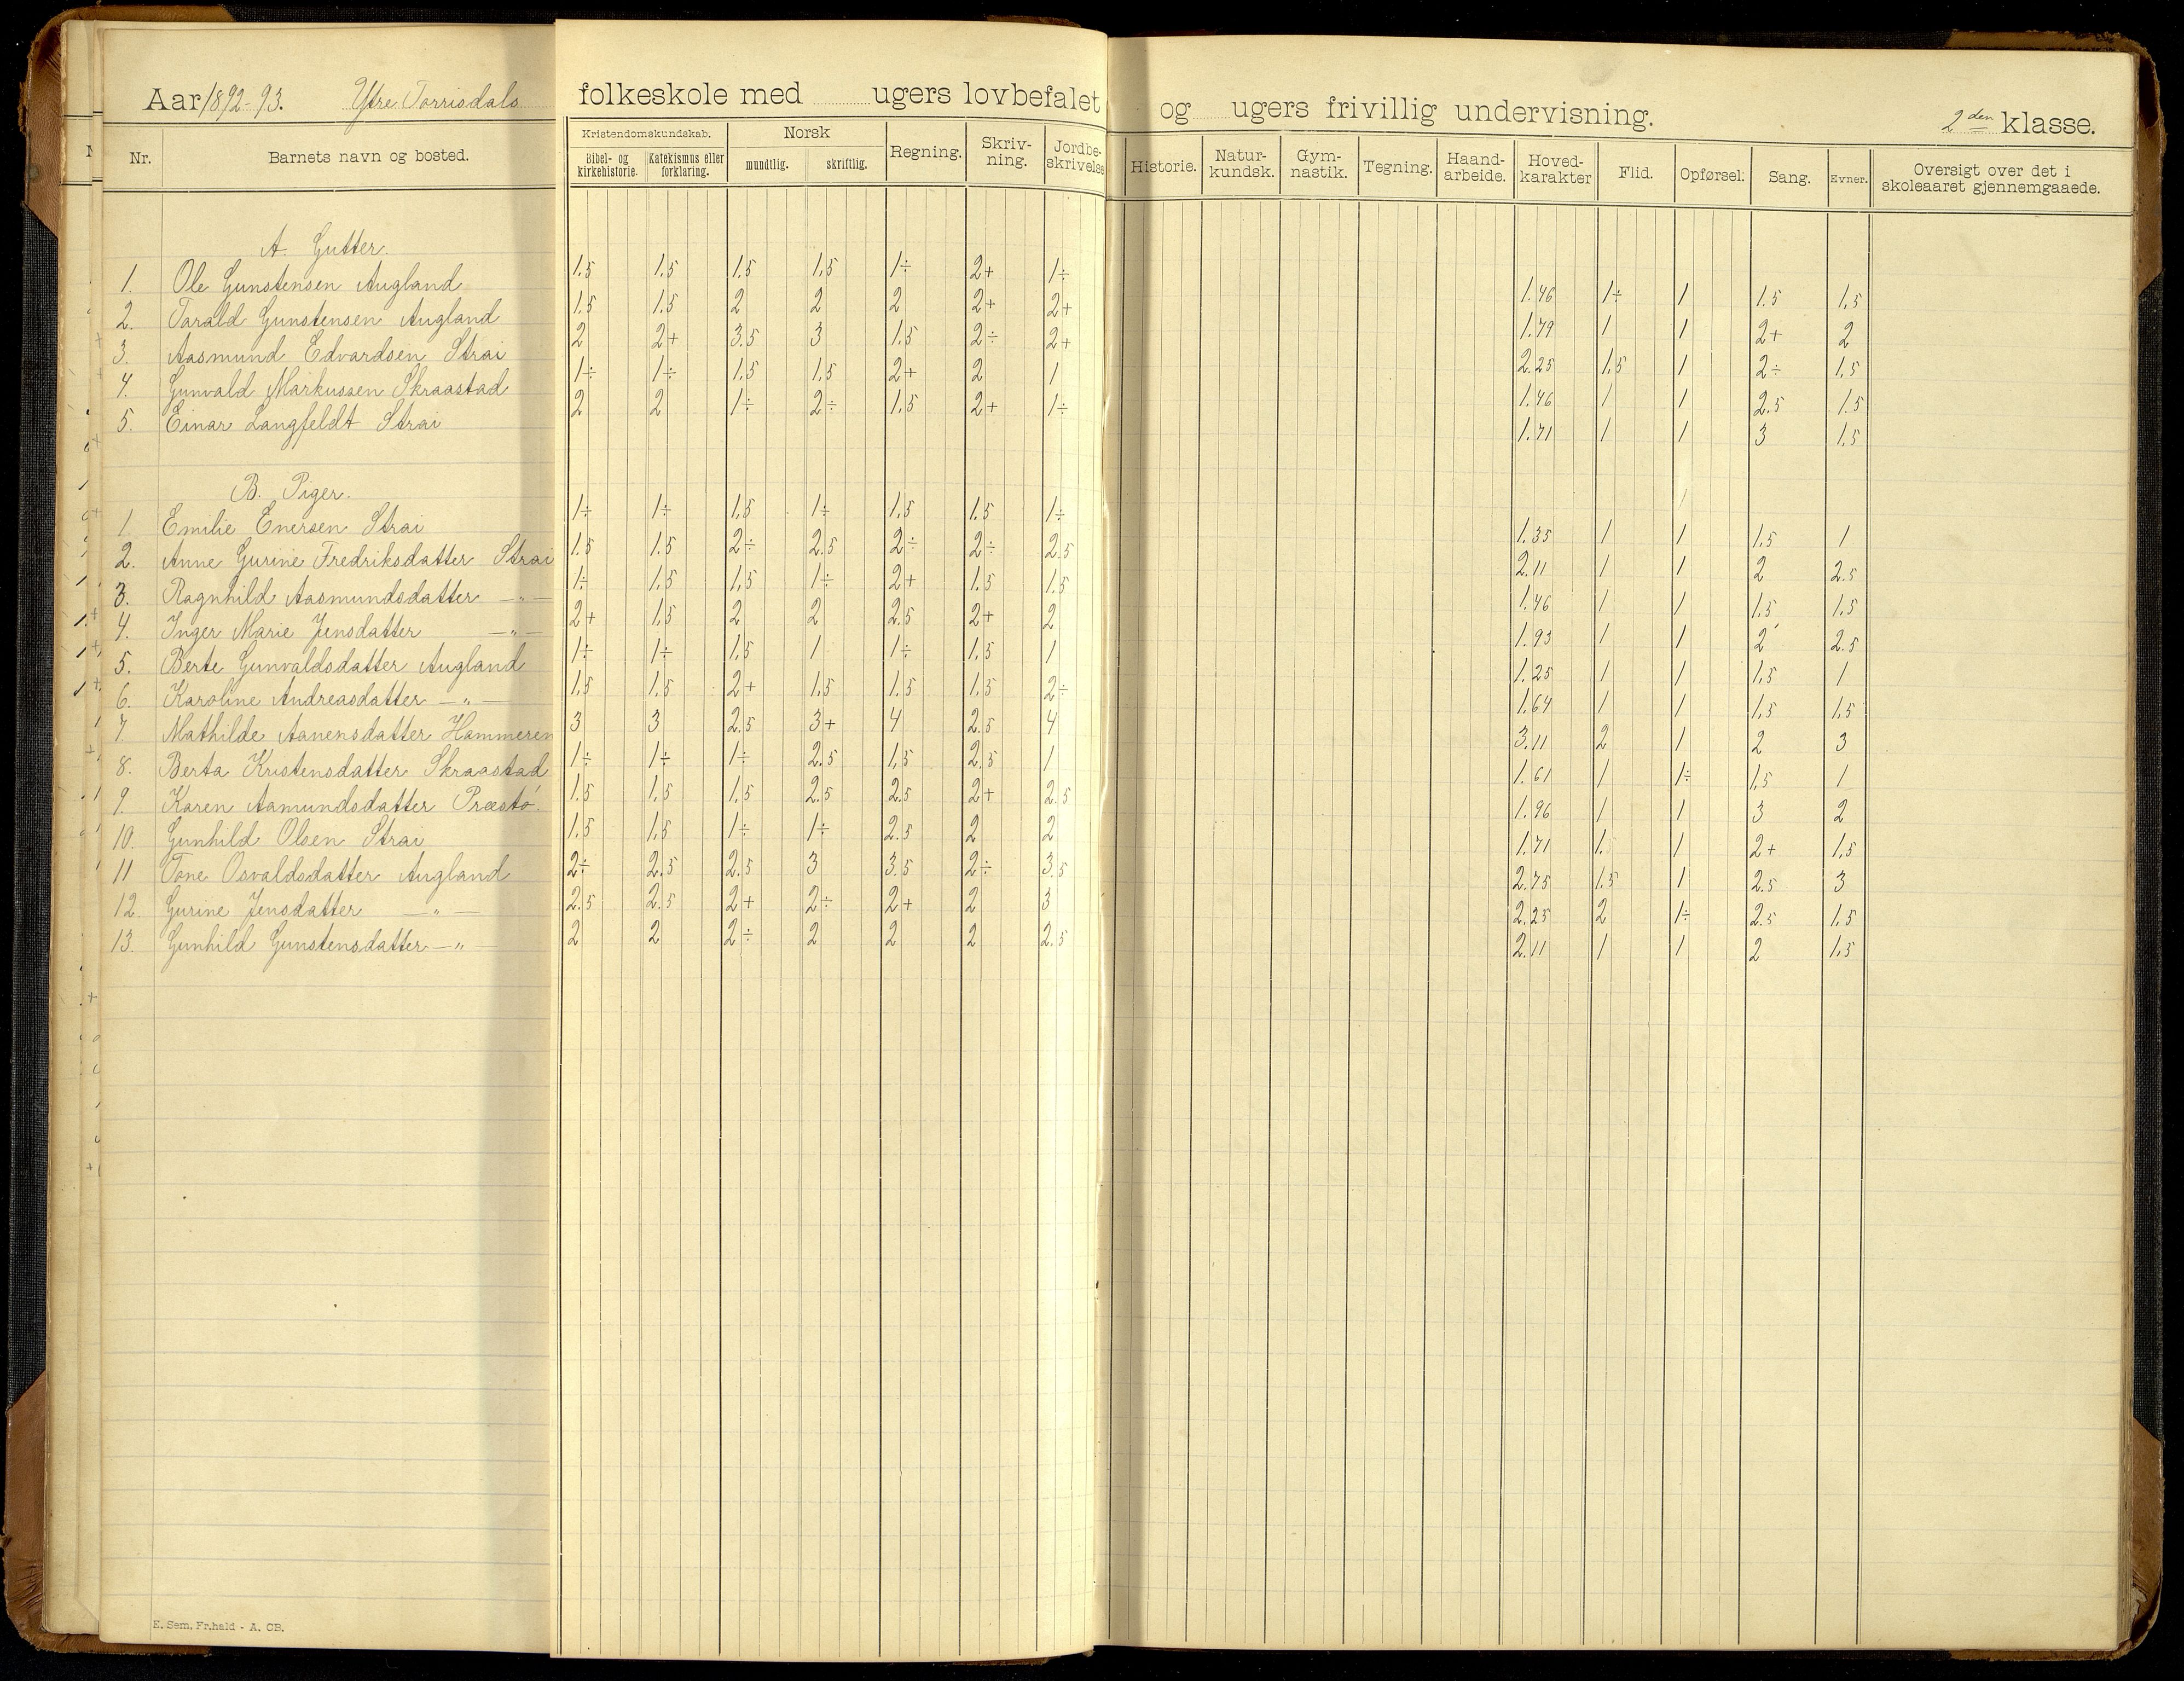 Aar 1892-93. Ytre Torrisdals folkeskole med ugers lovbefalet og ugers frivillig undervisning. 2den klasse.
Nr. Barnets navn og bosted. Kristendomskundskab. Bibel- og kirkehistorie. Katekismus eller forklaring. Norsk mundtlig. skriftlig. Regning. Skriv-ning. Jordbe-skrivelse Historie. Natur-kundsk. Gym-nastik. Tegning. Haand-arbeide. Hoved-karakter Flid. Opførsel. Sang. Evner. Oversigt over det i skoleaaret gjennemgaaede.
A. Gutter.
1. Ole Gunstensen Augland 1.5 1.5 1.5 1.5 1÷ 2+ 1÷ 1.46 1÷ 1 1.5 1.5
2. Torald Gunstensen Augland 1.5 1.5 2 2 2 2+ 2+ 1.79 1 1 2+ 2
3. Aasmund Edvardsen Strai 2 2+ 3.5 3 1.5 2÷ 2+ 2.25 1.5 1 2÷ 1.5
4. Gunvald Markussen Skraastad 1÷ 1÷ 1.5 1.5 2+ 2 1 1.46 1 1 2.5 1.5
5. Einar Langfeldt Strai 2 2 1÷ 2÷ 1.5 2+ 1÷ 1.71 1 1 3 1.5
B. Piger.
1. Emilie Enersen Strai 1÷ 1÷ 1.5 1÷ 1.5 1.5 1÷ 1.35 1 1 1.5 1
2. Anne Gurine Fredriksdatter Strai 1.5 1.5 2÷ 2.5 2÷ 2÷ 2.5 2.11 1 1 2 2.5
3. Ragnhild Aasmundsdatter —"— 1÷ 1.5 1.5 1÷ 2+ 1.5 1.5 1.46 1 1 1.5 1.5
4. Inger Marie Jensdatter —"— 2+ 1.5 2 2 2.5 2+ 2 1.93 1 1 2 2.5
5. Berte Gunvaldsdatter Augland 1÷ 1÷ 1.5 1 1÷ 1.5 1 1.25 1 1 1.5 1
6. Karoline Andreasdatter —"— 1.5 1.5 2+ 1.5 1.5 1.5 2÷ 1.64 1 1 1.5 1.5
7. Mathilde Aanensdatter Hammeren 3 3 2.5 3+ 4 2.5 4 3.11 2 1 2 3
8. Berta Kristensdatter Skraastad 1÷ 1÷ 1÷ 2.5 1.5 2.5 1 1.61 1 1÷ 1.5 1
9. Karen Aamundsdatter Præstø. 1.5 1.5 1.5 2.5 2.5 2+ 2.5 1.96 1 1 3 2
10. Gunhild Olsen Strai 1.5 1.5 1÷ 1÷ 2.5 2 2 1.71 1. 1 2+ 1.5
11 Tone Osvaldsdatter Augland 2÷ 2.5 2.5 3 3.5 2÷ 3.5 2.75 1.5 1 2.5 3
12. Gurine Jensdatter —"— 2.5 2.5 2+ 2÷ 2+ 2 3 2.25 2 1÷ 2.5 1.5
13. Gunhild Gunstensdatter —"— 2 2 2÷ 2 2 2 2.5 2.11 1 1 2 1.5
E. Sem, Fr.hald - A. CB.